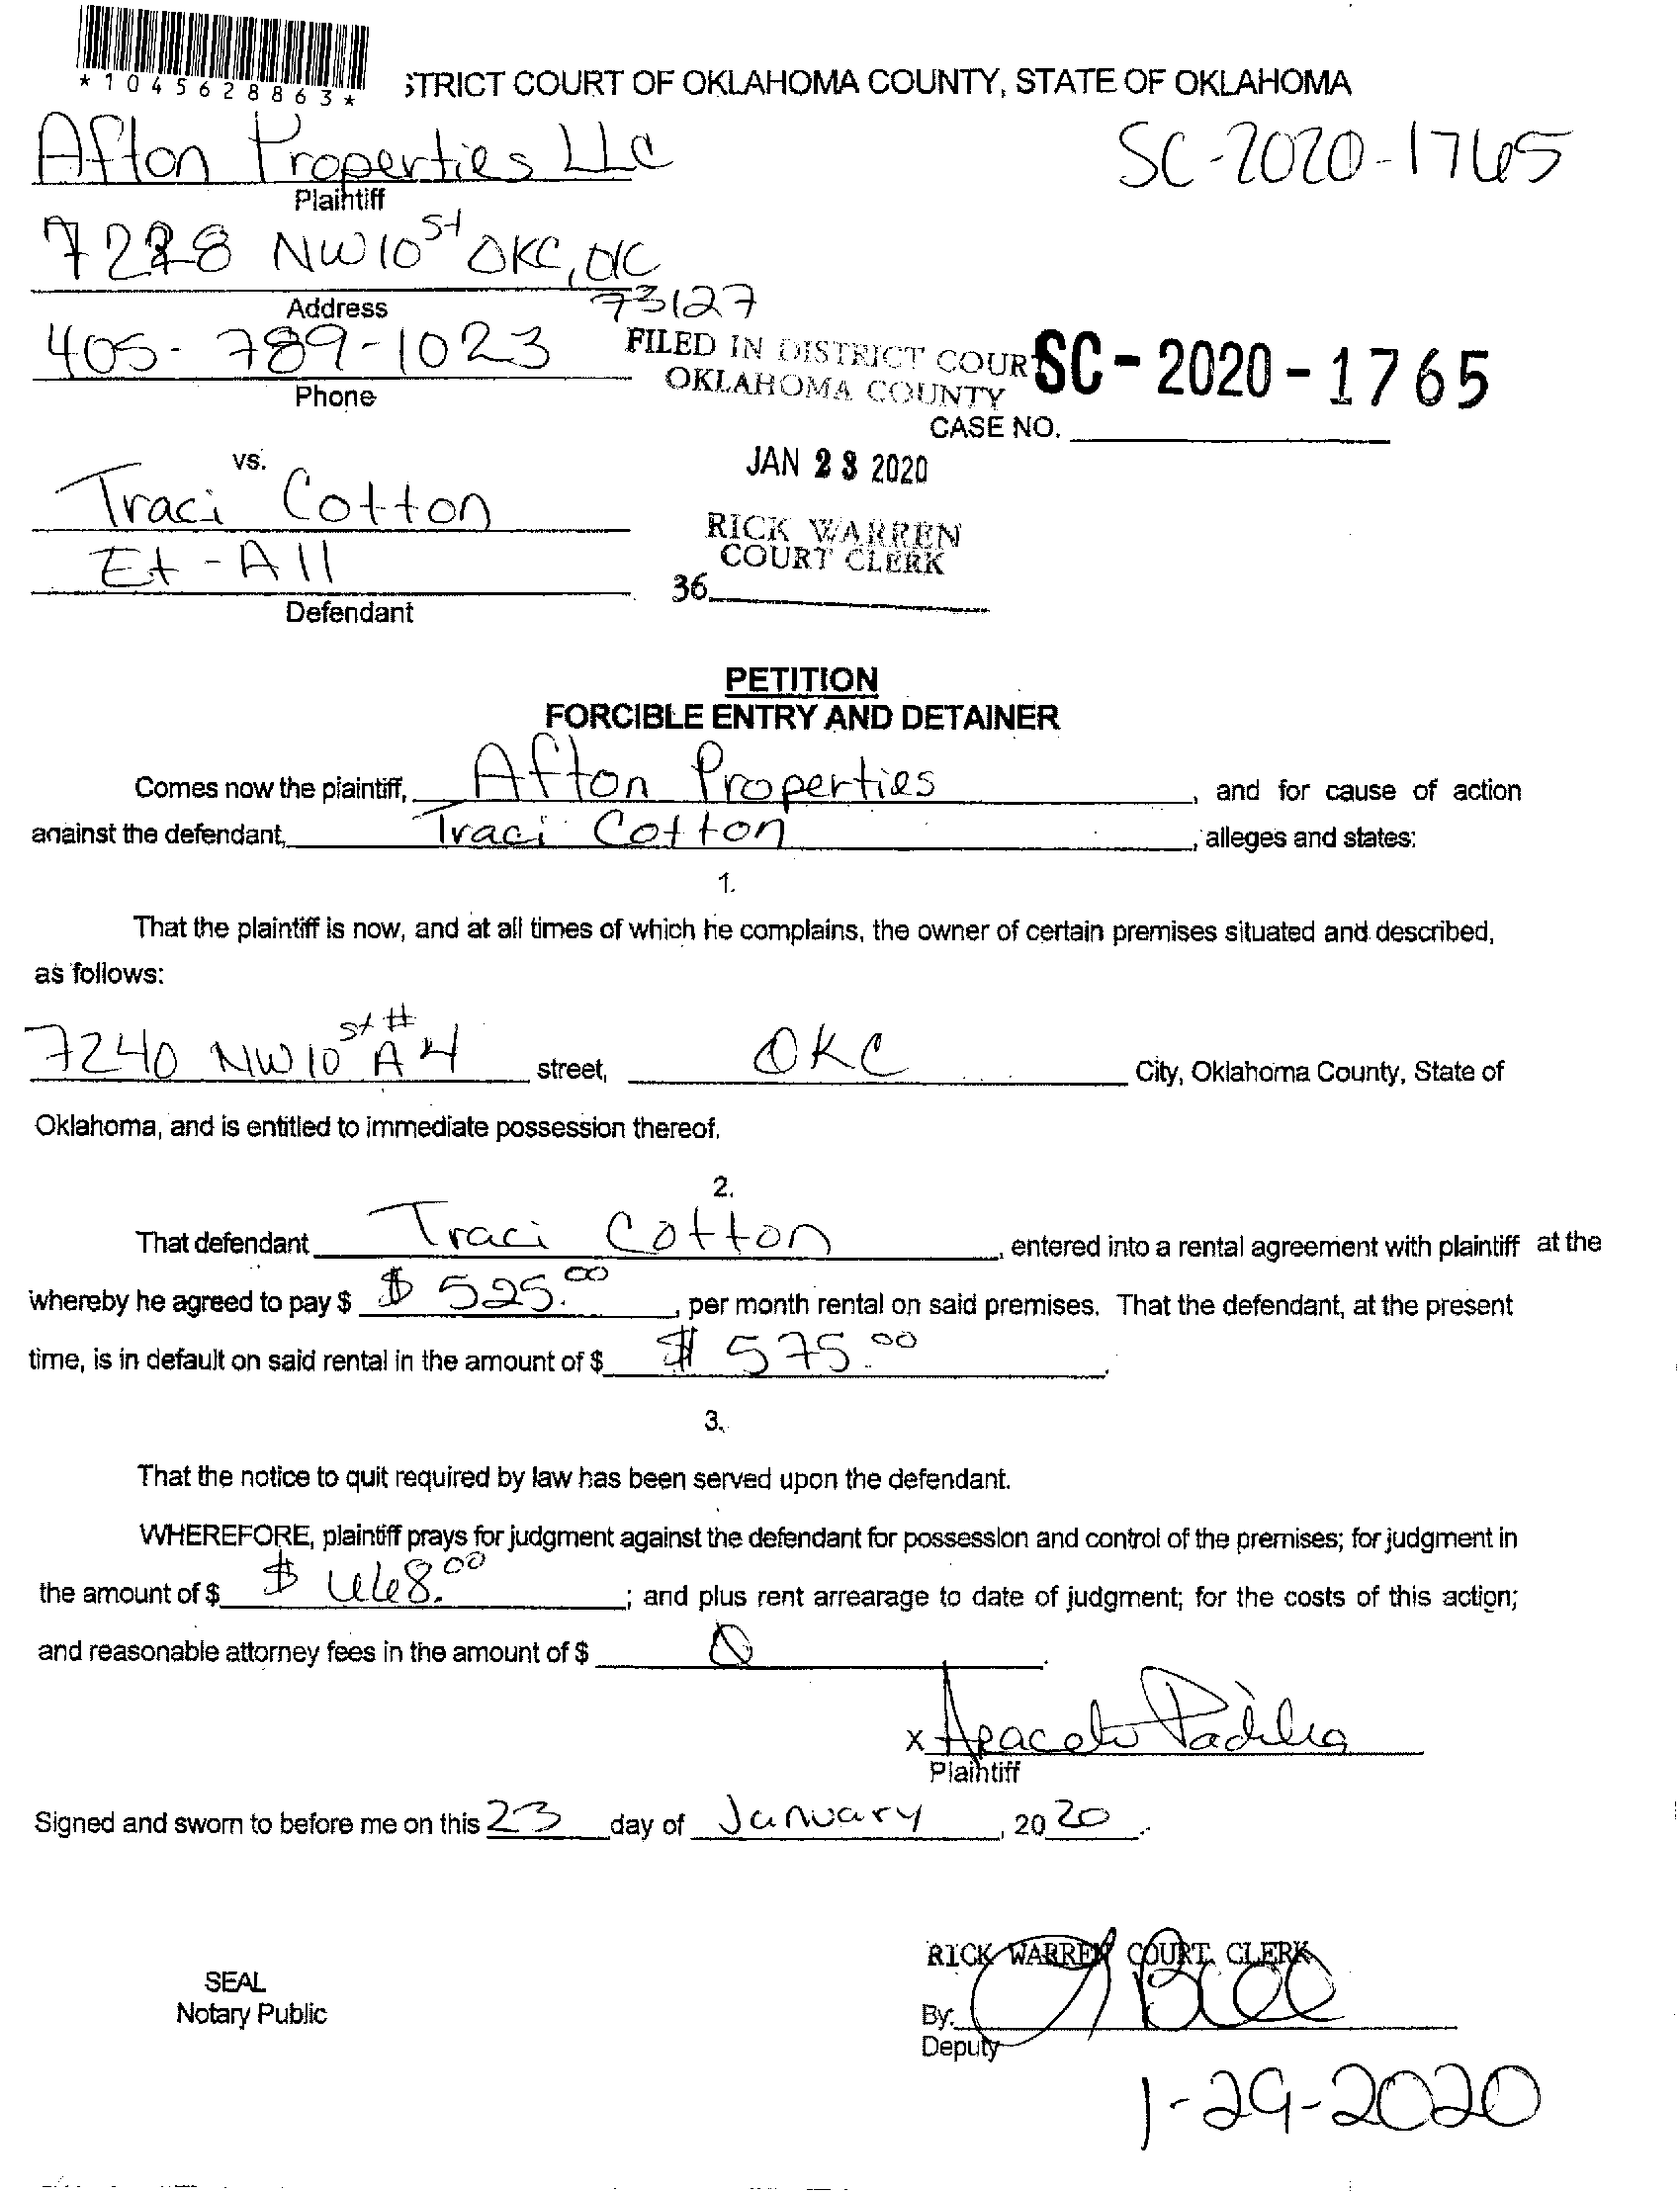 *1045628863*
STRICT COURT OF OKLAHOMA COUNTY, STATE OF OKLAHOMA
Afton Properties LLC
SC-2020-1765
Plaintiff
7228 NW 10 St OKC, OK
73127
Address
405-789-1023
Phone
FILED IN DISTRICT COURT
OKLAHOMA COUNTY
SC-2020-1765
CASE NO.
JAN 23 2020
vs.
Traci Cotton
Et-All
Defendant
RICK WARREN
COURT CLERK
36
PETITION
FORCIBLE ENTRY AND DETAINER
Comes now the plaintiff, Afton Properties, and for cause of action
against the defendant, Traci Cotton, alleges and states:
1.
That the plaintiff is now, and at all times of which he complains, the owner of certain premises situated and described,
as follows:
7240 NW 10 St # A4 street, OKC City, Oklahoma County, State of
Oklahoma, and is entitled to immediate possession thereof.
2.
That defendant Traci Cotton, entered into a rental agreement with plaintiff at the
whereby he agreed to pay $ $ 525.00, per month rental on said premises. That the defendant, at the present
time, is in default on said rental in the amount of $ $ 575.00.
3.
That the notice to quit required by law has been served upon the defendant.
WHEREFORE, plaintiff prays for judgment against the defendant for possession and control of the premises; for judgment in
the amount of $ $ 668.00; and plus rent arrearage to date of judgment; for the costs of this action;
and reasonable attorney fees in the amount of $ 0.
x Aracely Padilla
Plaintiff
Signed and sworn to before me on this 23 day of January, 2020.
SEAL
Notary Public
RICK WARREN COURT CLERK
By:
Deputy
1-29-2020